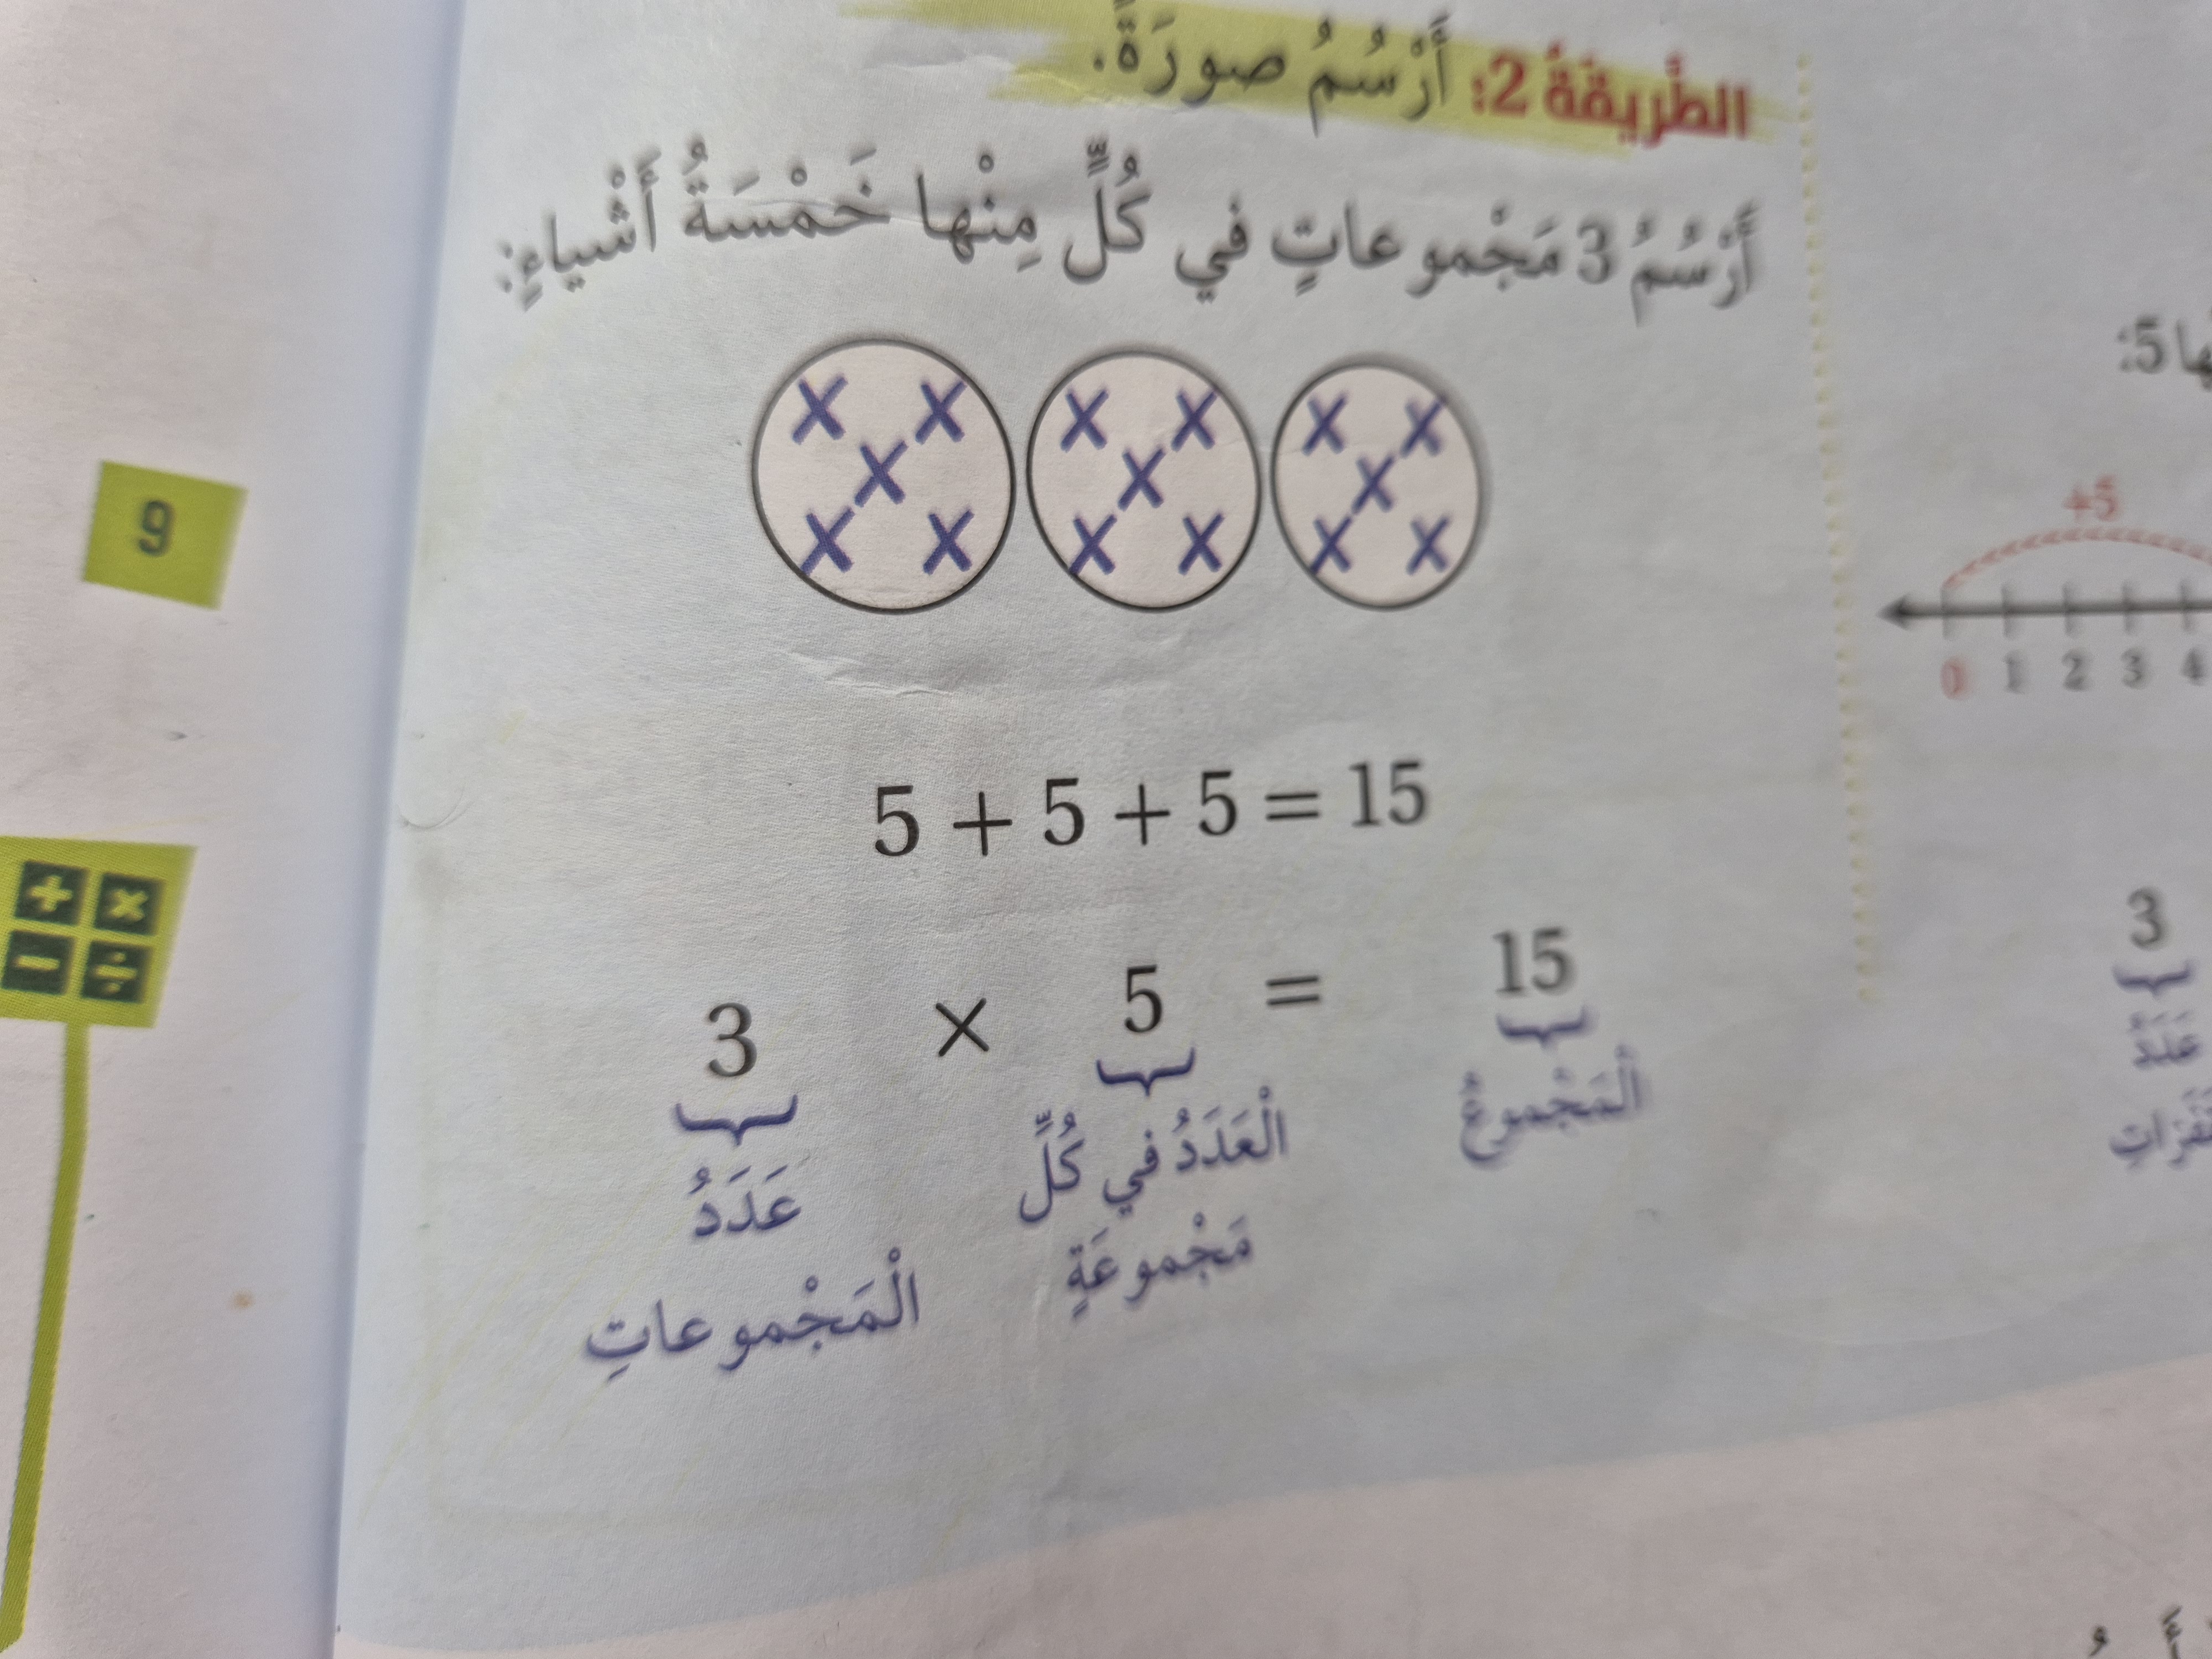 الطَّريقَةُ 2: أَرْسُمُ صورَةً.
أَرْسُمُ 3 مَجْموعاتٍ في كُلٍّ مِنْها خَمْسَةُ أَشْياءٍ:
X X X X X
X X X X X
X X X X X
5 + 5 + 5 = 15
3 × 5 = 15
عَدَدُ الْمَجْموعاتِ
الْعَدَدُ في كُلِّ مَجْموعَةٍ
الْمَجْموعُ
5:
+5
0 1 2 3 4
3
عَدَدُ
9
+ ×
− ÷